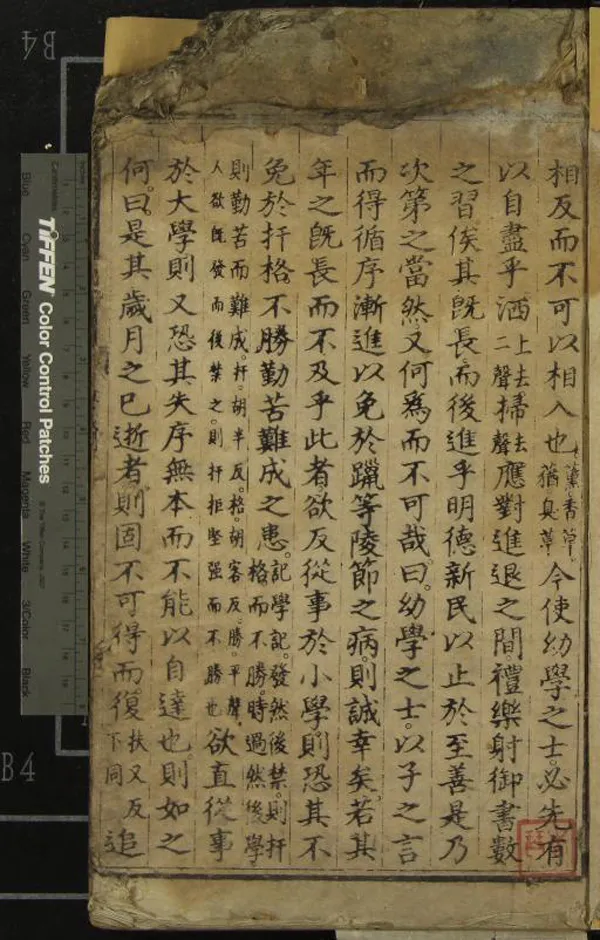 相反而不可以相入也薰香草蕕臭草今使幼學之士。必先有
以自盡乎洒上去二聲掃去聲應對進退之間。禮樂射御書數
之習。俟其旣長。而後進乎明德新民。以止於至善。是乃
次第之當然。又何爲而不可哉。曰。幼學之士。以子之言
而得循序漸進。以免於躐等陵節之病。則誠幸矣。若其
年之旣長而不及乎此者。欲反從事於小學。則恐其不
免於扞格不勝勤苦難成之患。記學記。發然後禁。則扞格而不勝。時過然後學
則勤苦而難成。扞。胡半反。格。胡客反。勝。平聲。人欲旣發而後禁之。則扞拒堅强而不勝也欲直從事
於大學則又恐其失序無本而不能以自達也。則如之
何。曰。是其歲月之已逝者。則固不可得而復扶又反下同追
B4
B4
TIFFEN Color Control Patches
Centimetres
Blue Cyan Green Yellow Red Magenta White 3/Color Black